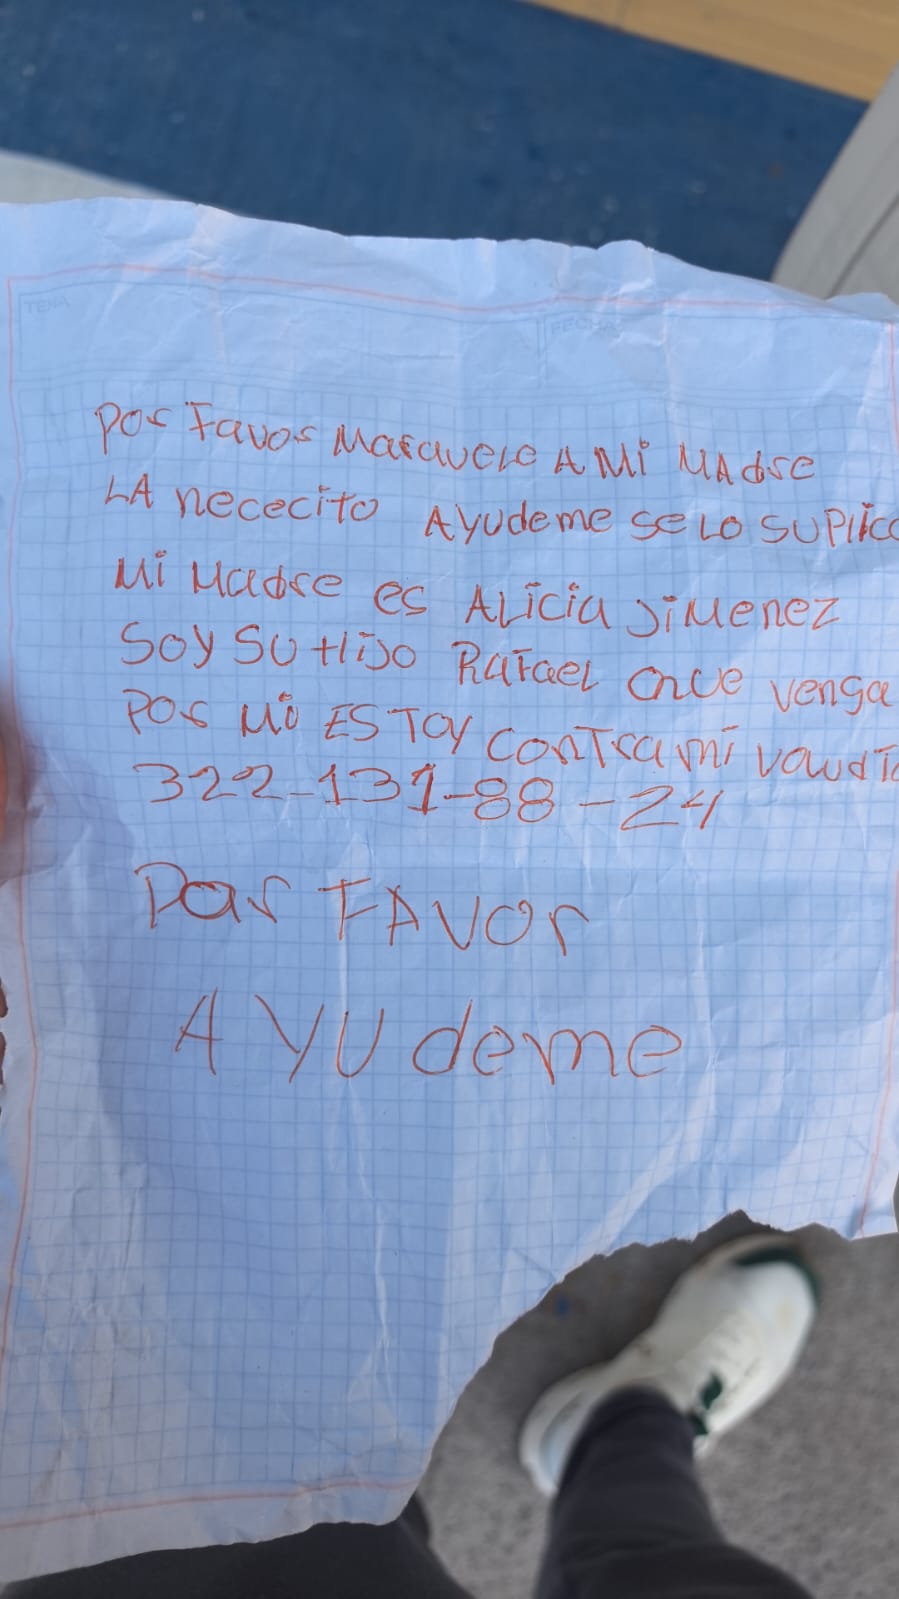 TEMA
FECHA
Por Favor Marquele A Mi MAdre
LA nececito AYUdeme se LO SUPLico
Mi Madre es ALicia JiMenez
SOY SU HiJO RaFaeL
venga
Por Mi ESTOY conTra mi
322-131-88-24
Por FAVOr
AYUdeme